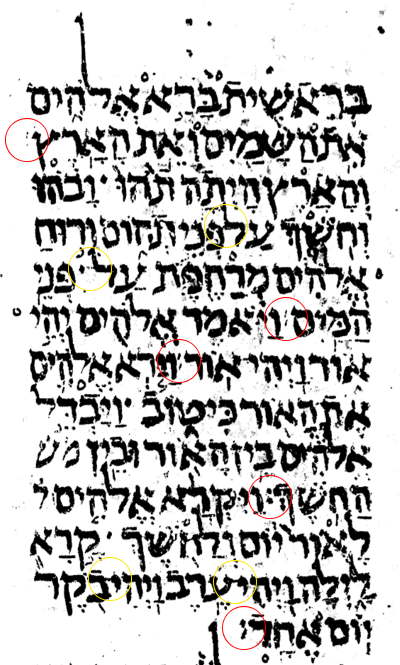 בראשית ברא אלהים
את השמים ואת הארץ
והארץ היתה תהו ובהו
וחשך על פני תהום ורוח
אלהים מרחפת על פני
המים ויאמר אלהים יהי
אור ויהי אור וירא אלהים
את האור כי טוב ויבדל
אלהים בין האור ובין
החשך ויקרא אלהים
לאור יום ולחשך קרא
לילה ויהי ערב ויהי בקר
יום אחד